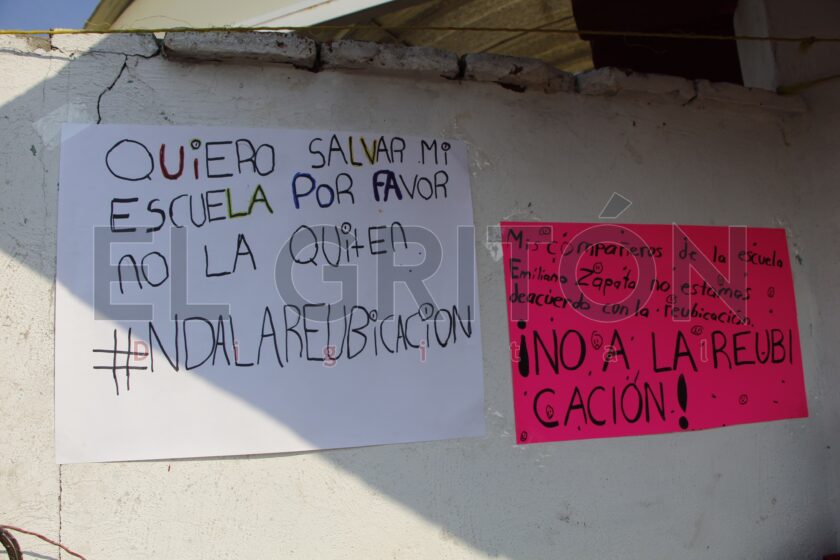 QUiERO SALVAR Mi
ESCUELA POR FAVOR
NO LA QUiten
#NOALAREUBiCACiON
Mis compañeros de la escuela
Emiliano Zapata no estamos
deacuerdo con la reubicación.
¡NO A LA REUBI
CACIÓN!
EL GRITÓN
Digital